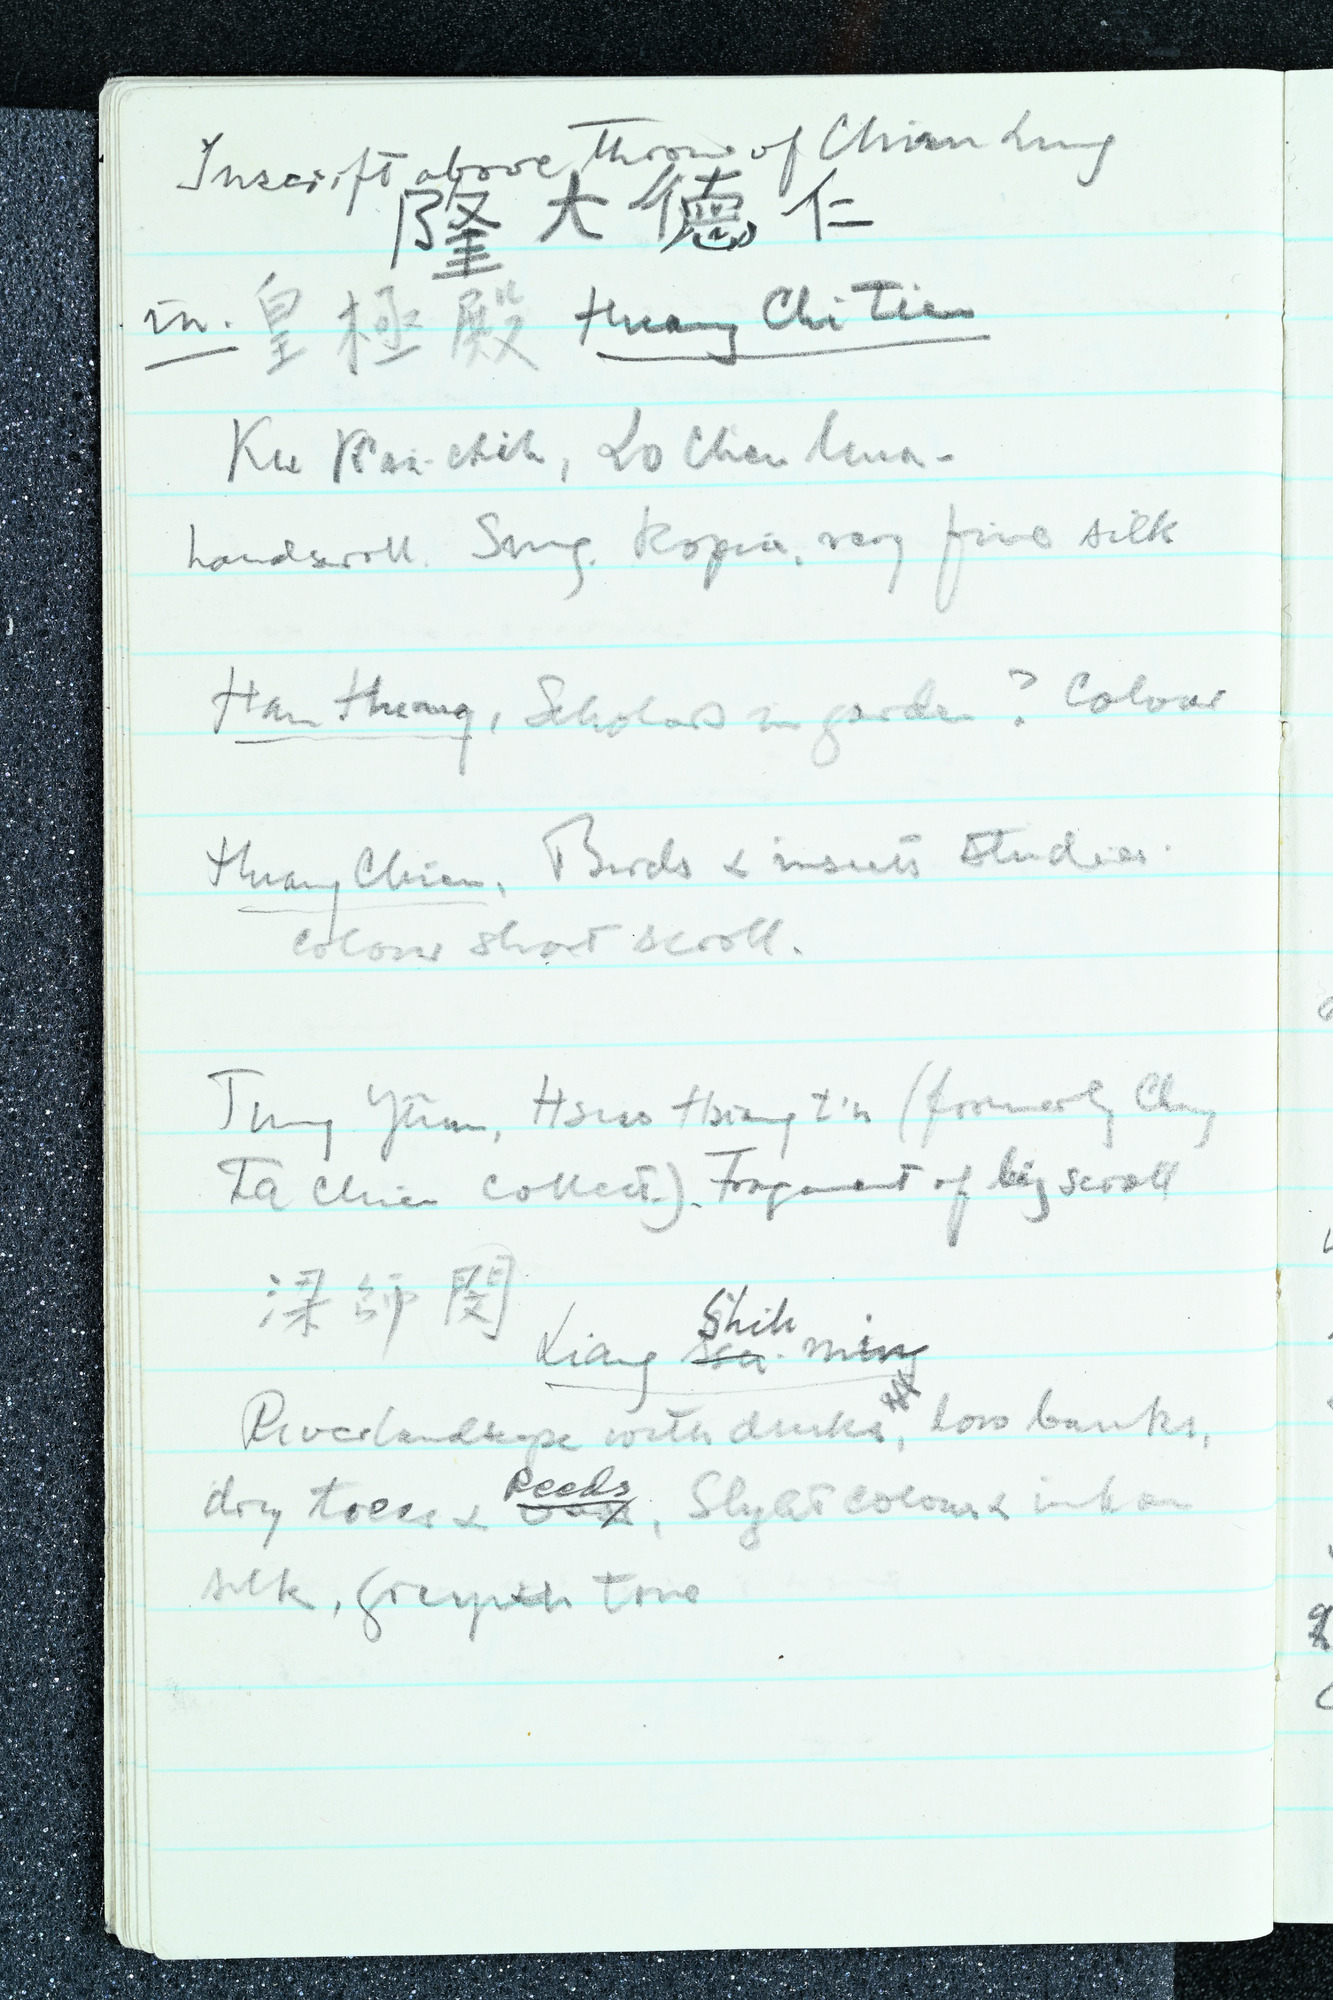 Inscript above Throne of Chien Lung
隆 大 德 仁
in. 皇極殿 Huang Chi Tien
Ku K'ai-chih, Lo Chen
handscroll. Sung. Kopia, very fine silk
Han Huang, Scholars in garden ? Colour
Huang Chien, Birds & insects studies.
colour short scroll.
Tung Yüan, Hsiao Hsiang t'u (formerly Chang
Ta Chien collect.). Fragment of big scroll
梁師閔
Liang Shih ming
Riverlandscape with ducks, low banks,
dry trees & Reeds, Slight colour & ink on
silk, greyish tone